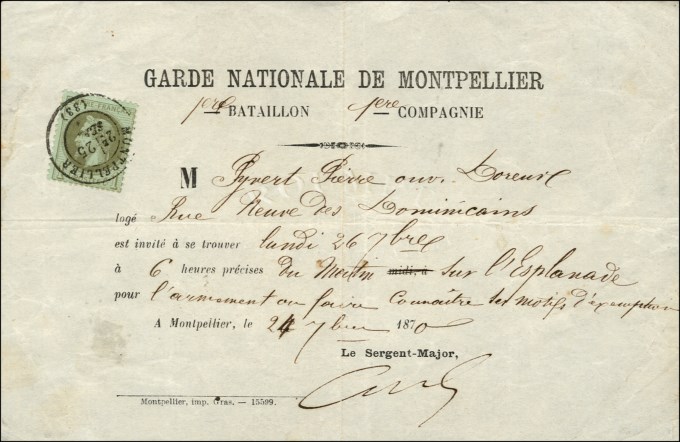 GARDE NATIONALE DE MONTPELLIER
1ere BATAILLON 1ere COMPAGNIE
MONTPELLIER (33)
25
SEPT
M Pyvert Pierre ouv. Doreur
logé Rue Neuve des Dominicains
est invité à se trouver lundi 26 7bre
à 6 heures précises du Matin midi, à sur l'Esplanade
pour l'armement ou faire Connaître les motifs d'exemption
A Montpellier, le 24 7bre 1870
Le Sergent-Major,
Montpellier, imp. Gras. — 15599.